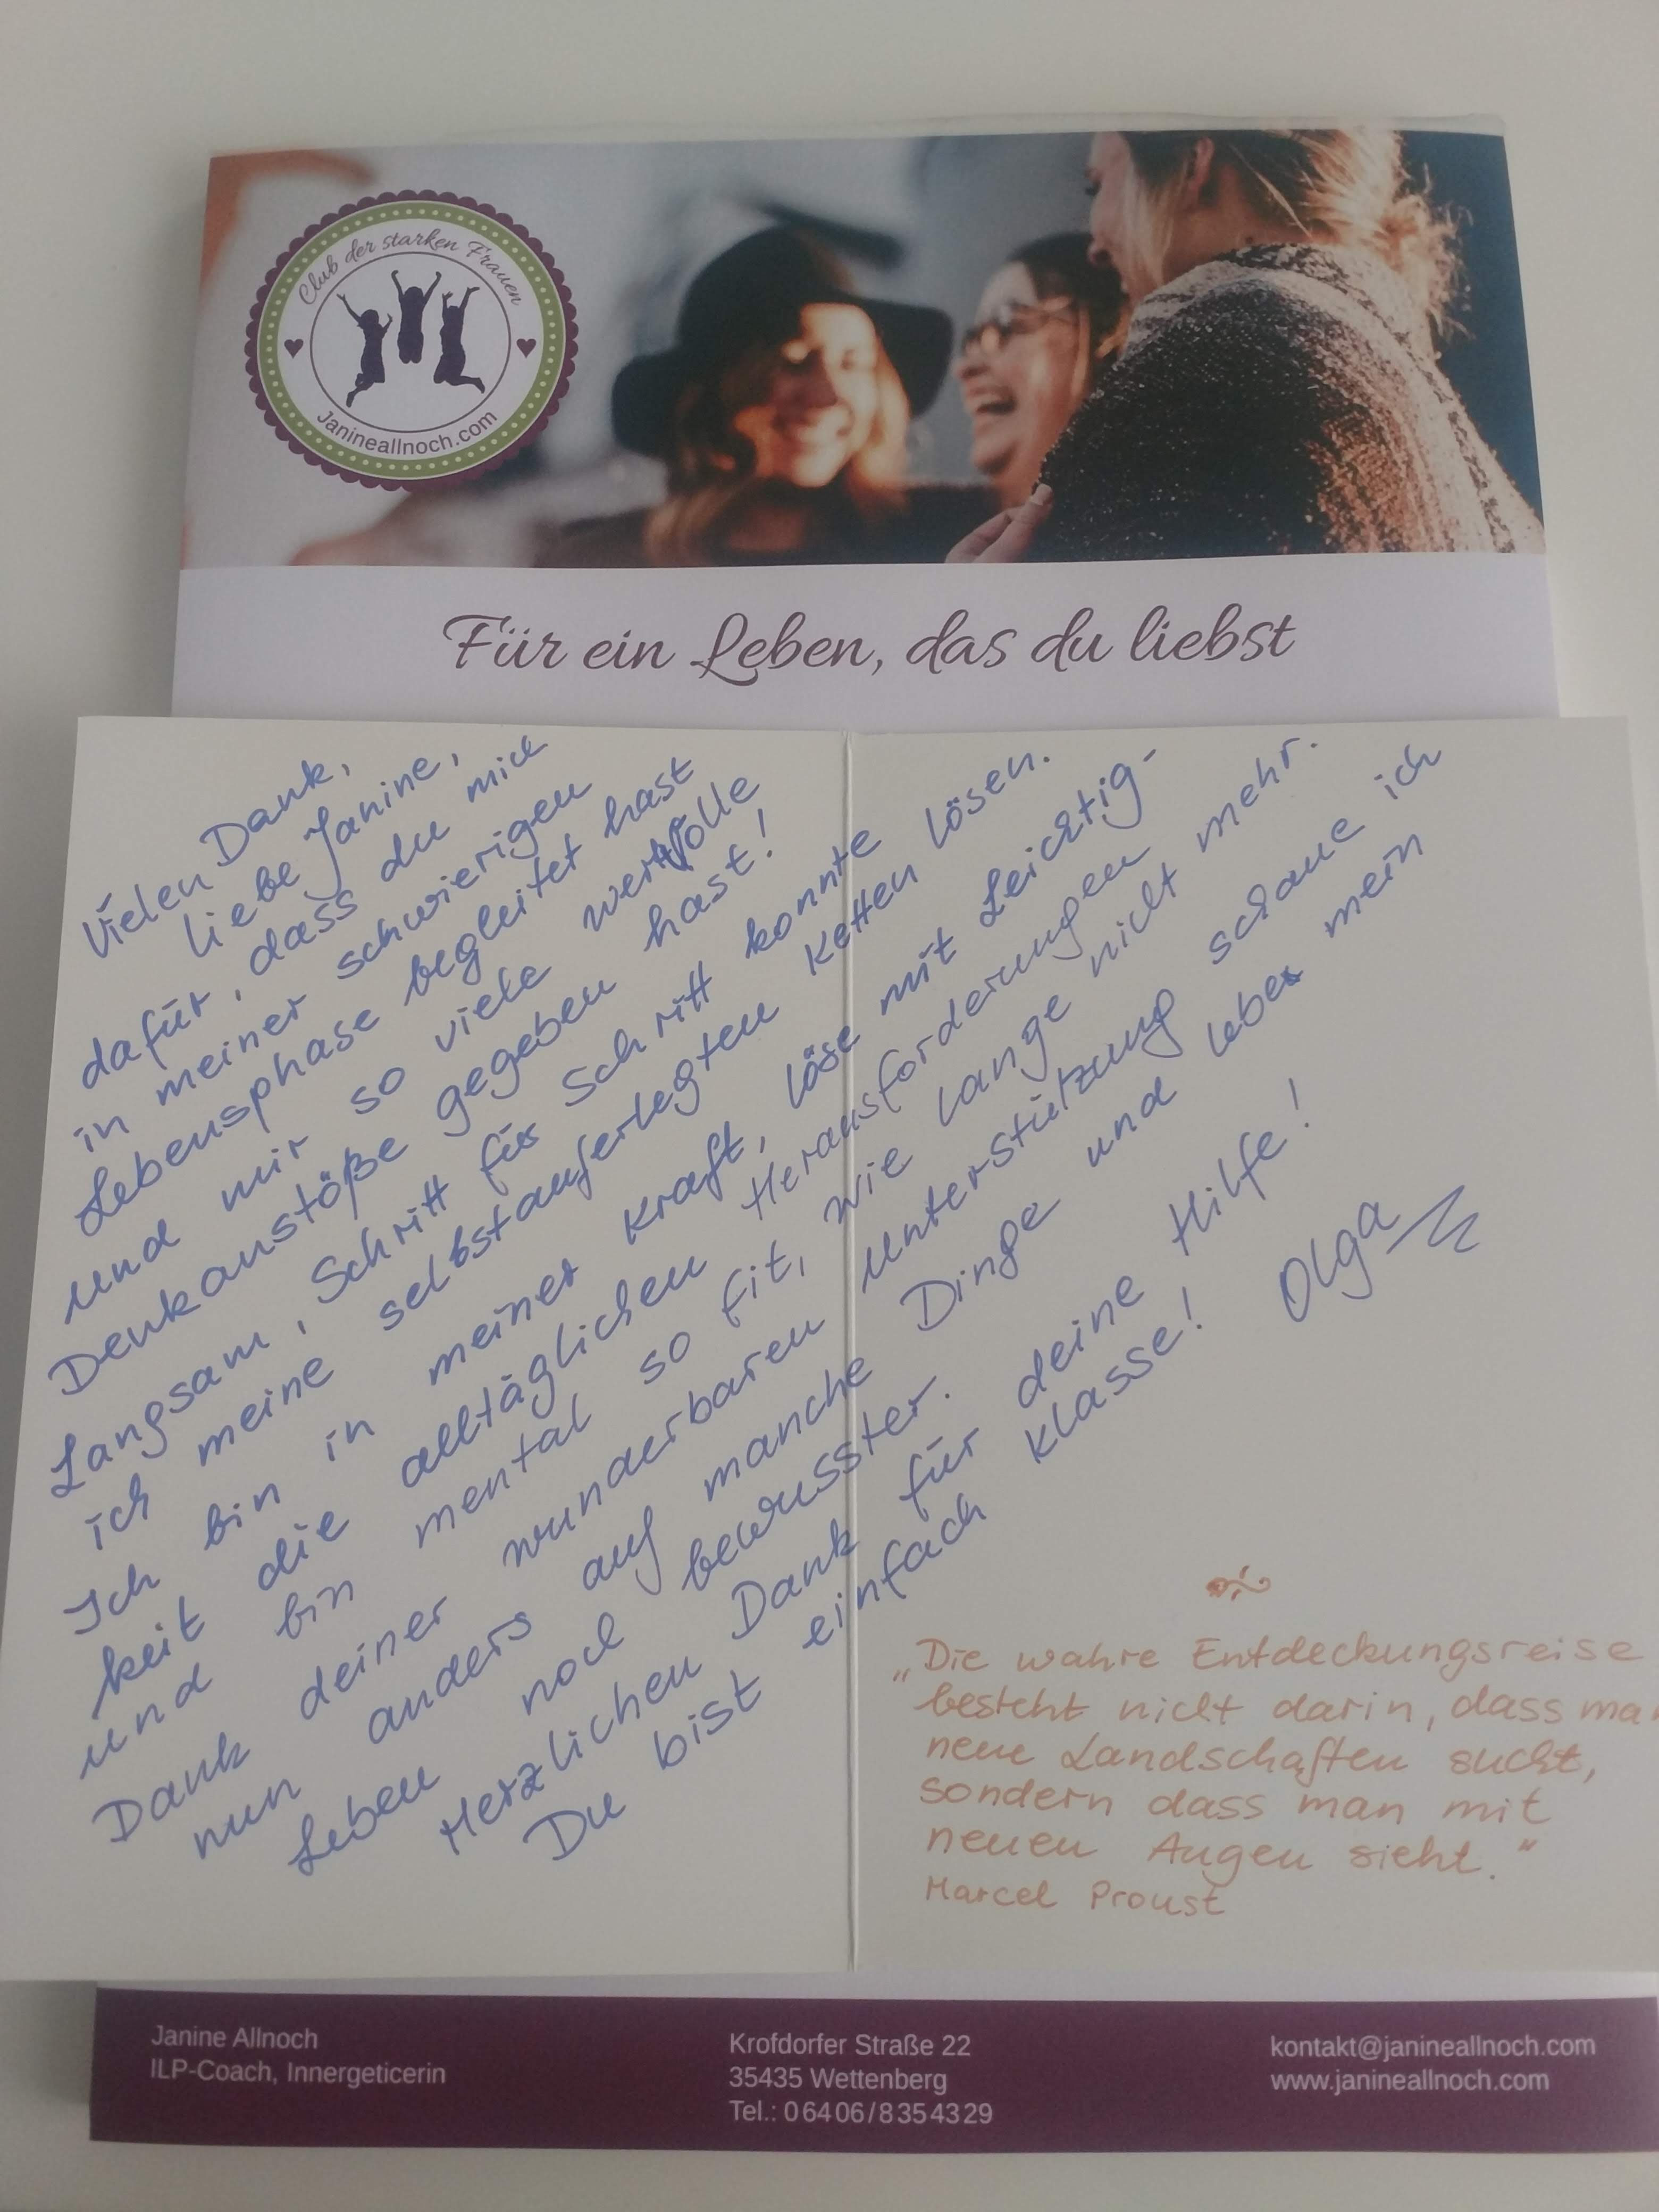 Club der starken Frauen
Janineallnoch.com
Für ein Leben, das du liebst
Vielen Dank,
liebe Janine,
dafür, dass du mich
in meiner schwierigen
Lebensphase begleitet hast
und mir so viele wertvolle
Denkanstöße gegeben hast!
Langsam, Schritt für Schritt konnte
ich meine selbstauferlegten Ketten lösen.
Ich bin in meiner Kraft, löse mit Leichtig-
keit die alltäglichen Herausforderungen
und bin mental so fit, wie lange nicht mehr.
Dank deiner wunderbaren Unterstützung schaue ich
nun anders auf manche Dinge und lebe mein
Leben noch bewusster.
Herzlichen Dank für deine Hilfe!
Du bist einfach klasse! Olga
„Die wahre Entdeckungsreise
besteht nicht darin, dass man
neue Landschaften sucht,
sondern dass man mit
neuen Augen sieht.“
Marcel Proust
Janine Allnoch
ILP-Coach, Innergeticerin
Krofdorfer Straße 22
35435 Wettenberg
Tel.: 06406/8354329
kontakt@janineallnoch.com
www.janineallnoch.com